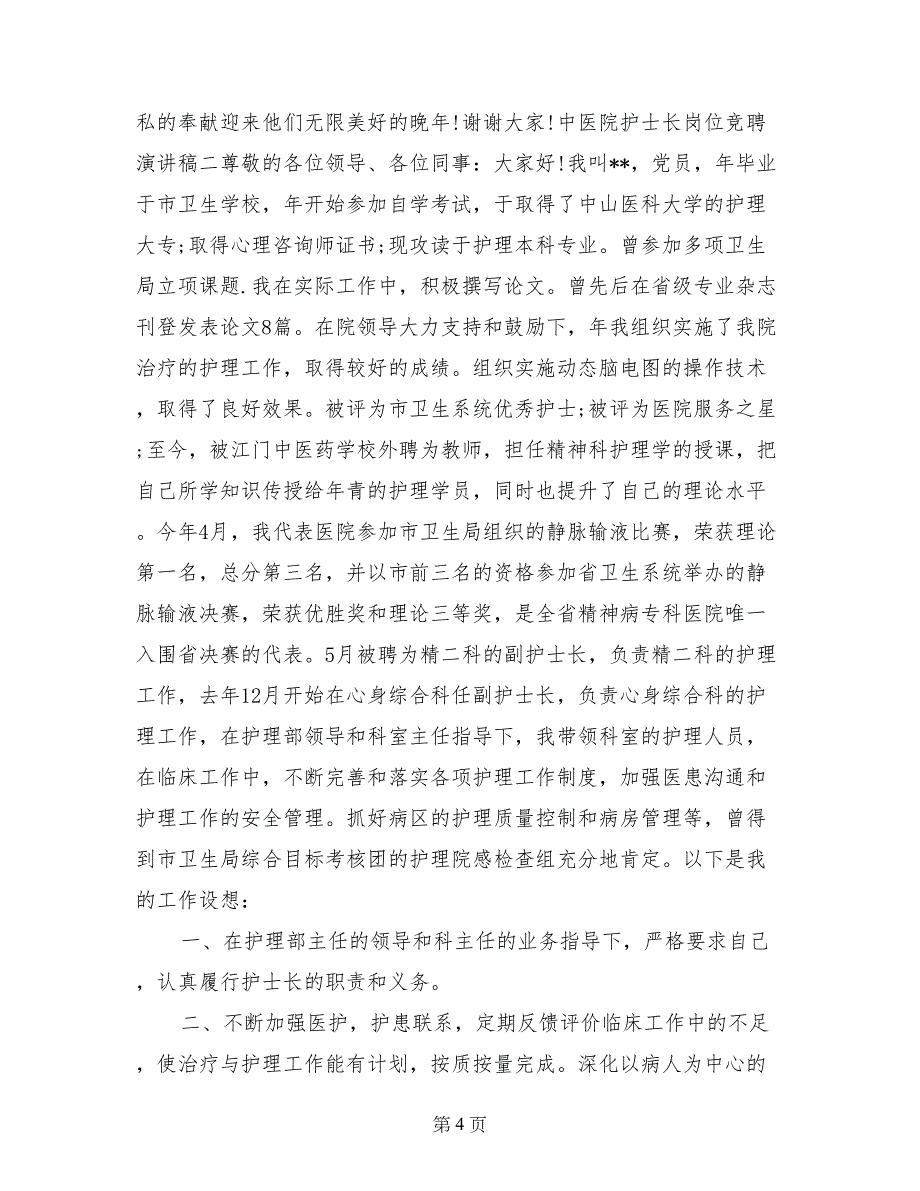 私的奉献迎来他们无限美好的晚年!谢谢大家!中医院护士长岗位竞聘
演讲稿二尊敬的各位领导、各位同事：大家好!我叫**，党员，年毕业
于市卫生学校，年开始参加自学考试，于取得了中山医科大学的护理
大专;取得心理咨询师证书;现攻读于护理本科专业。曾参加多项卫生
局立项课题.我在实际工作中，积极撰写论文。曾先后在省级专业杂志
刊登发表论文8篇。在院领导大力支持和鼓励下，年我组织实施了我院
治疗的护理工作，取得较好的成绩。组织实施动态脑电图的操作技术
，取得了良好效果。被评为市卫生系统优秀护士;被评为医院服务之星
;至今，被江门中医药学校外聘为教师，担任精神科护理学的授课，把
自己所学知识传授给年青的护理学员，同时也提升了自己的理论水平
。今年4月，我代表医院参加市卫生局组织的静脉输液比赛，荣获理论
第一名，总分第三名，并以市前三名的资格参加省卫生系统举办的静
脉输液决赛，荣获优胜奖和理论三等奖，是全省精神病专科医院唯一
入围省决赛的代表。5月被聘为精二科的副护士长，负责精二科的护理
工作，去年12月开始在心身综合科任副护士长，负责心身综合科的护
理工作，在护理部领导和科室主任指导下，我带领科室的护理人员，
在临床工作中，不断完善和落实各项护理工作制度，加强医患沟通和
护理工作的安全管理。抓好病区的护理质量控制和病房管理等，曾得
到市卫生局综合目标考核团的护理院感检查组充分地肯定。以下是我
的工作设想：
一、在护理部主任的领导和科主任的业务指导下，严格要求自己
，认真履行护士长的职责和义务。
二、不断加强医护，护患联系，定期反馈评价临床工作中的不足
，使治疗与护理工作能有计划，按质按量完成。深化以病人为中心的
第 4 页